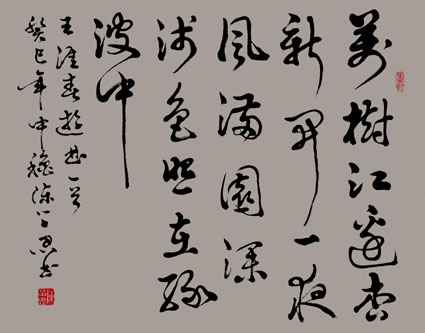 萬樹江邊杏
新開一夜
風滿園深
淺色照在綠
波中
王涯春遊曲一首
癸巳年中穐陳书